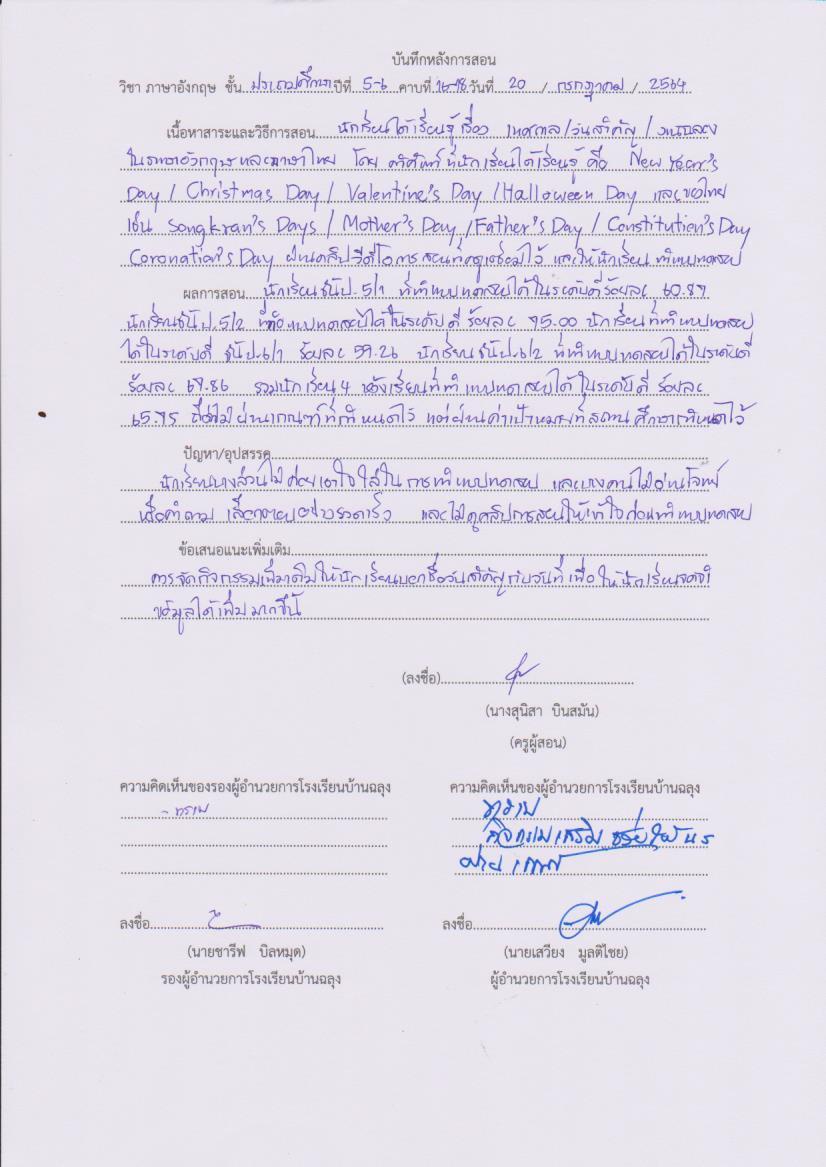 บันทึกหลังการสอน
วิชา ภาษาอังกฤษ ชั้น ประถมศึกษา ปีที่ 5-6 คาบที่ 16-18 วันที่ 20 / กรกฎาคม / 2564
เนื้อหาสาระและวิธีการสอน นักเรียนได้เรียนรู้เรื่อง เทศกาล/วันสำคัญ /
ในภาษาอังกฤษและภาษาไทย โดย คำศัพท์ที่นักเรียนได้เรียนรู้ คือ New Year's
Day / Christmas Day / Valentine's Day / Halloween Day และของไทย
เช่น Songkran's Days / Mother's Day / Father's Day / Constitution's Day
Coronation's Day ผ่านคลิปวีดีโอการสอนที่ครูเตรียมไว้ และให้นักเรียนทำแบบทดสอบ
ผลการสอน นักเรียนชั้นป.5/1 ที่ทำแบบทดสอบได้ในระดับดีร้อยละ 60.87
นักเรียนชั้นป.5/2 ที่ทำแบบทดสอบได้ในระดับดี ร้อยละ 75.00 นักเรียนที่ทำแบบทดสอบ
ได้ในระดับดี ชั้นป.6/1 ร้อยละ 59.26 นักเรียนชั้นป.6/2 ที่ทำแบบทดสอบได้ในระดับดี
ร้อยละ 67.86 รวมนักเรียน 4 ห้องเรียนที่ทำแบบทดสอบได้ในระดับดี ร้อยละ
65.75 ถือไม่ผ่านเกณฑ์ที่กำหนดไว้ แต่ผ่านค่าเป้าหมายที่สถานศึกษากำหนดไว้
ปัญหา/อุปสรรค
นักเรียนบางส่วนไม่ค่อยเอาใจใส่ในการทำแบบทดสอบ และบางคนไม่อ่านโจทย์
หรือคำถาม เลือกตอบอย่างรวดเร็ว และไม่ดูคลิปการสอนให้เข้าใจก่อนทำแบบทดสอบ
ข้อเสนอแนะเพิ่มเติม
ควรจัดกิจกรรมเพิ่มเติมให้นักเรียนบอกชื่อวันสำคัญกับวันที่ เพื่อให้นักเรียนจดจำ
ข้อมูลได้เพิ่มมากขึ้น
(ลงชื่อ)
(นางสุนิสา บินสมัน)
(ครูผู้สอน)
ความคิดเห็นของรองผู้อำนวยการโรงเรียนบ้านฉลุง
- ทราบ
ลงชื่อ
(นายชารีฟ บิลหมุด)
รองผู้อำนวยการโรงเรียนบ้านฉลุง
ความคิดเห็นของผู้อำนวยการโรงเรียนบ้านฉลุง
ทราบ
กิจกรรมเสริม ช่วยให้ นร
ผ่านเกณฑ์
ลงชื่อ
(นายเสวียง มูลติไชย)
ผู้อำนวยการโรงเรียนบ้านฉลุง